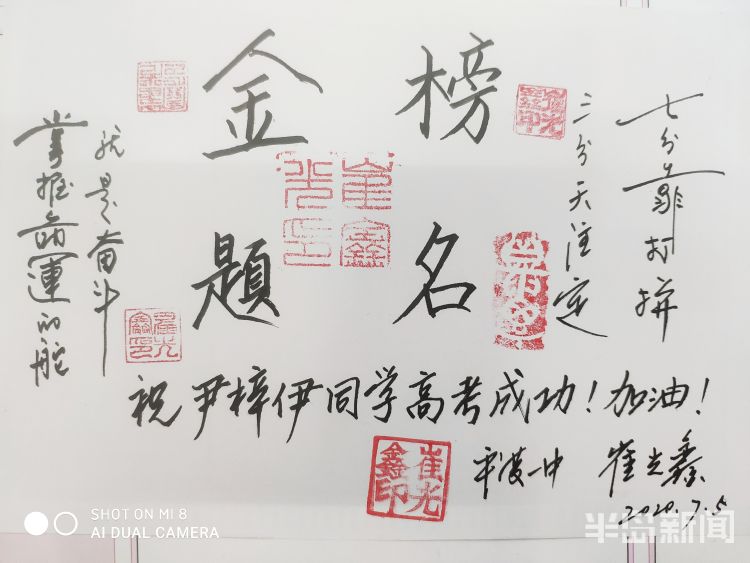 金榜
題名
三分天注定
七分靠打拼
掌握命運的舵
就是奋斗
祝尹梓伊同学高考成功！加油！
平度一中 崔光鑫
2020.7.5
崔光鑫印
崔光鑫印
SHOT ON MI 8
AI DUAL CAMERA
半岛新闻